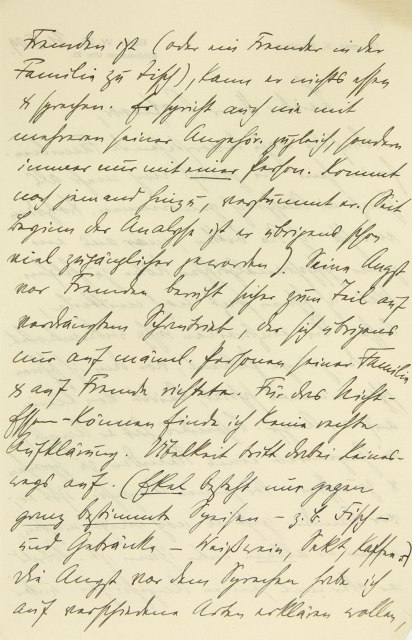 Fremden ist (oder ein Fremder in der
Familie zu Tisch), kann er nichts essen
& sprechen. Er spricht auch nie mit
mehreren seiner Angehör. zugleich, sondern
immer nur mit einer Person. Kommt
noch jemand hinzu, verstummt er. (Seit
Beginn der Analyse ist er übrigens schon
viel zugänglicher geworden). Seine Angst
vor Fremden beruht sicher zum Teil auf
verdrängtem Schautrieb, der sich übrigens
nur auf männl. Personen seiner Familie
& auf Fremde richtete. Für das Nicht-
Essen-Können finde ich keine rechte
Aufklärung. Übelkeit tritt dabei keines-
wegs auf. (Ekel besteht nur gegen
ganz bestimmte Speisen – z. B. Fisch –
und Getränke – Weißwein, Sekt, Kaffee
Die Angst vor dem Sprechen habe ich
auf verschiedene Arten erklären wollen,